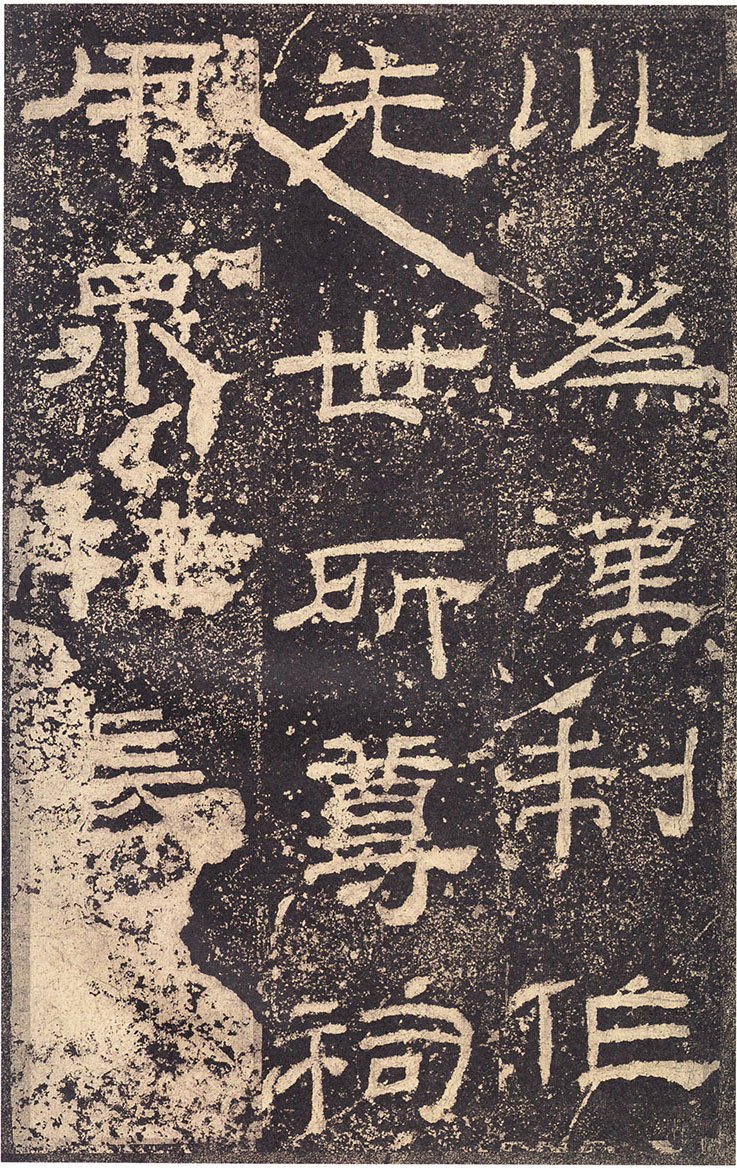 川為漢制作
先世所尊祠
用眾牲長